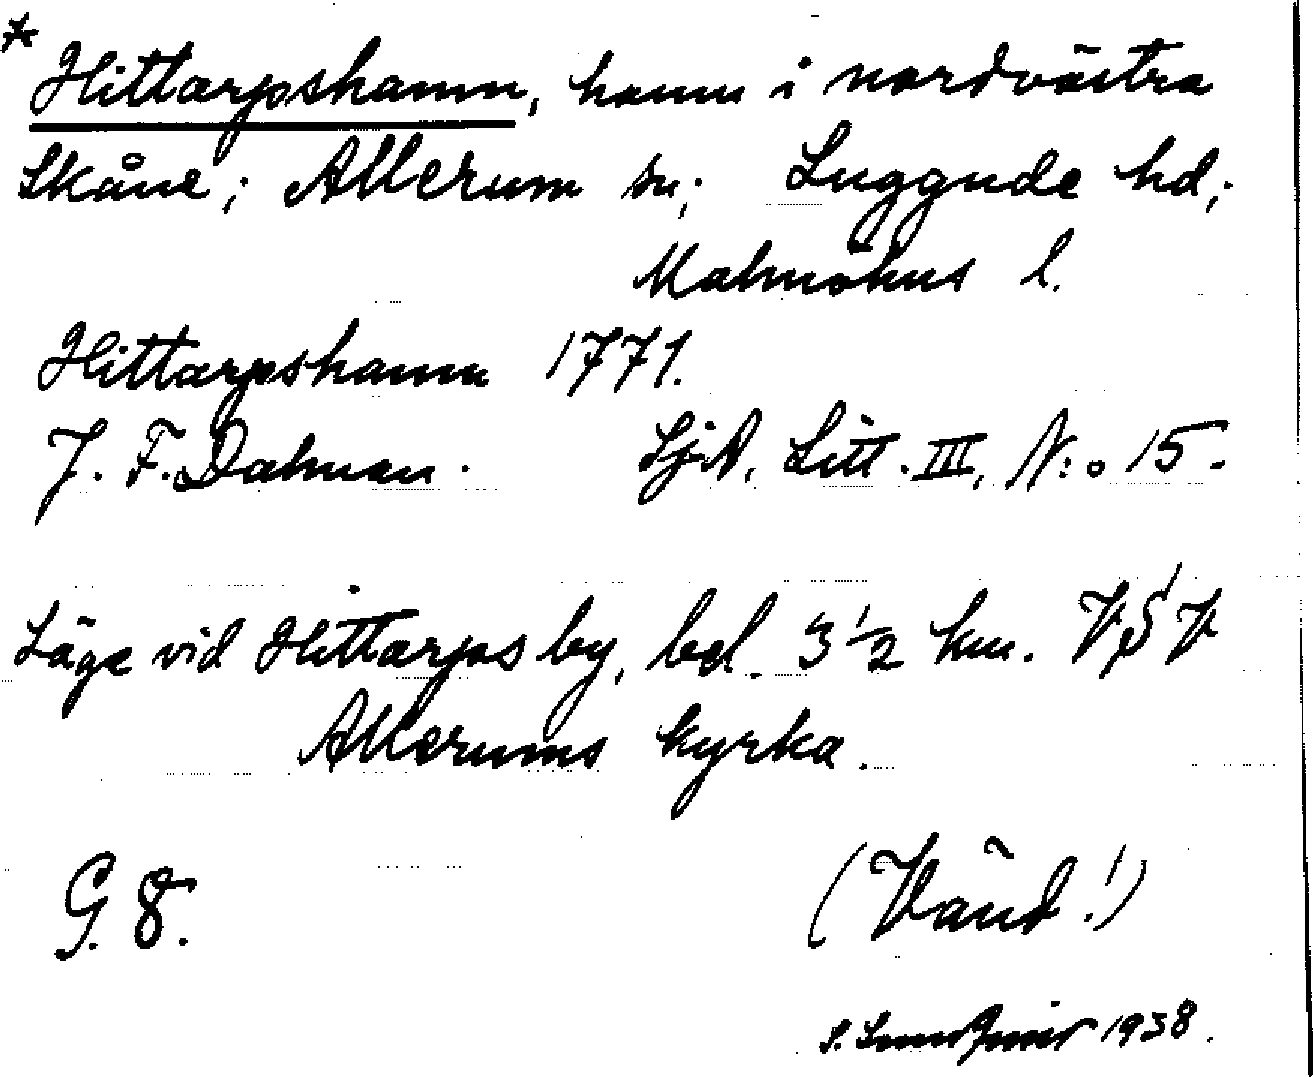 * Hittarpshamn, hamn i nordvästra
Skåne; Allerum sn; Luggude hd;
Malmöhus l.
Hittarpshamn 1771.
J. F. Dalman. SjA. Litt. III, N:o 15.
Läge vid Hittarps by, bel. 3 1/2 km. VSV
Allerums kyrka.
G. 8. (Vänd!)
S. 1938.